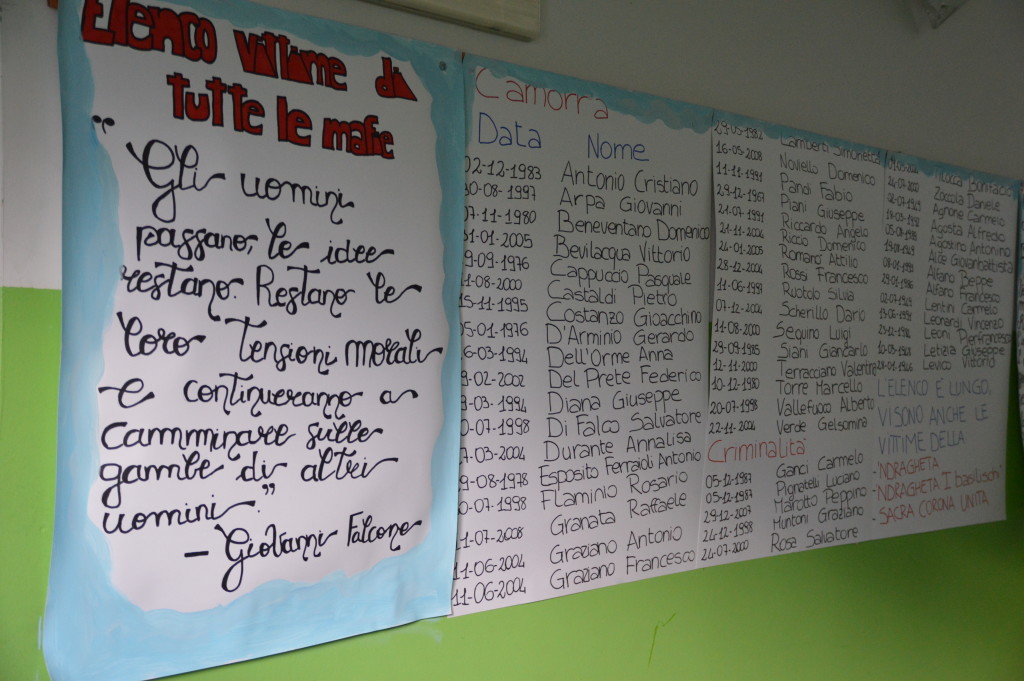 Elenco vittime di
tutte le mafie
“Gli uomini
passano, le idee
restano. Restano le
loro Tensioni morali
e continueranno a
camminare sulle
gambe di altri
uomini.”
- Giovanni Falcone
Camorra
Data Nome
02-12-1983 Antonio Cristiano
30-08-1997 Arpa Giovanni
07-11-1980 Beneventano Domenico
31-01-2005 Bevilacqua Vittorio
9-09-1976 Cappuccio Pasquale
1-08-2000 Castaldi Pietro
15-11-1995 Costanzo Gioacchino
5-01-1976 D'Arminio Gerardo
6-03-1994 Dell'Orme Anna
9-02-2002 Del Prete Federico
9-03-1994 Diana Giuseppe
0-07-1998 Di Falco Salvatore
7-03-2004 Durante Annalisa
9-08-1978 Esposito Ferraioli Antonio
0-07-1998 Flaminio Rosario
1-07-2008 Granata Raffaele
11-06-2004 Graziano Antonio
11-06-2004 Graziano Francesco
29-05-1982 Lamberti Simonetta
16-05-2008 Noviello Domenico
11-11-1991 Pandi Fabio
29-12-1967 Piani Giuseppe
21-07-1991 Riccardo Angelo
21-11-2004 Riccio Domenico
24-01-2005 Romano Attilio
28-12-2004 Rossi Francesco
11-06-1997 Ruotolo Silvia
07-12-2004 Scherillo Dario
11-08-2000 Sequino Luigi
29-09-1985 Siani Giancarlo
12-11-2000 Terracciano Valentina
10-12-1980 Torre Marcello
20-07-1998 Vallefuoco Alberto
22-11-2004 Verde Gelsomina
Criminalità
05-12-1987 Ganci Carmelo
05-12-1987 Pignatelli Luciano
29-12-2007 Mairotto Peppino
24-12-1998 Muntoni Graziano
24-07-2000 Rosa Salvatore
24-07-2000 Zoccola Daniele
Agnone Carmelo
Agosta Alfredo
Agostino Antonino
Aloe Gioanbattista
Alfano Beppe
Alfano Francesco
Lentini Carmelo
Leonardi Vincenzo
Leoni Pierfrancesco
Letizia Giuseppe
Levico Vittorio
L'ELENCO È LUNGO,
VI SONO ANCHE LE
VITTIME DELLA
- 'NDRAGHETA
- 'NDRAGHETA "I basileschi"
- SACRA CORONA UNITA